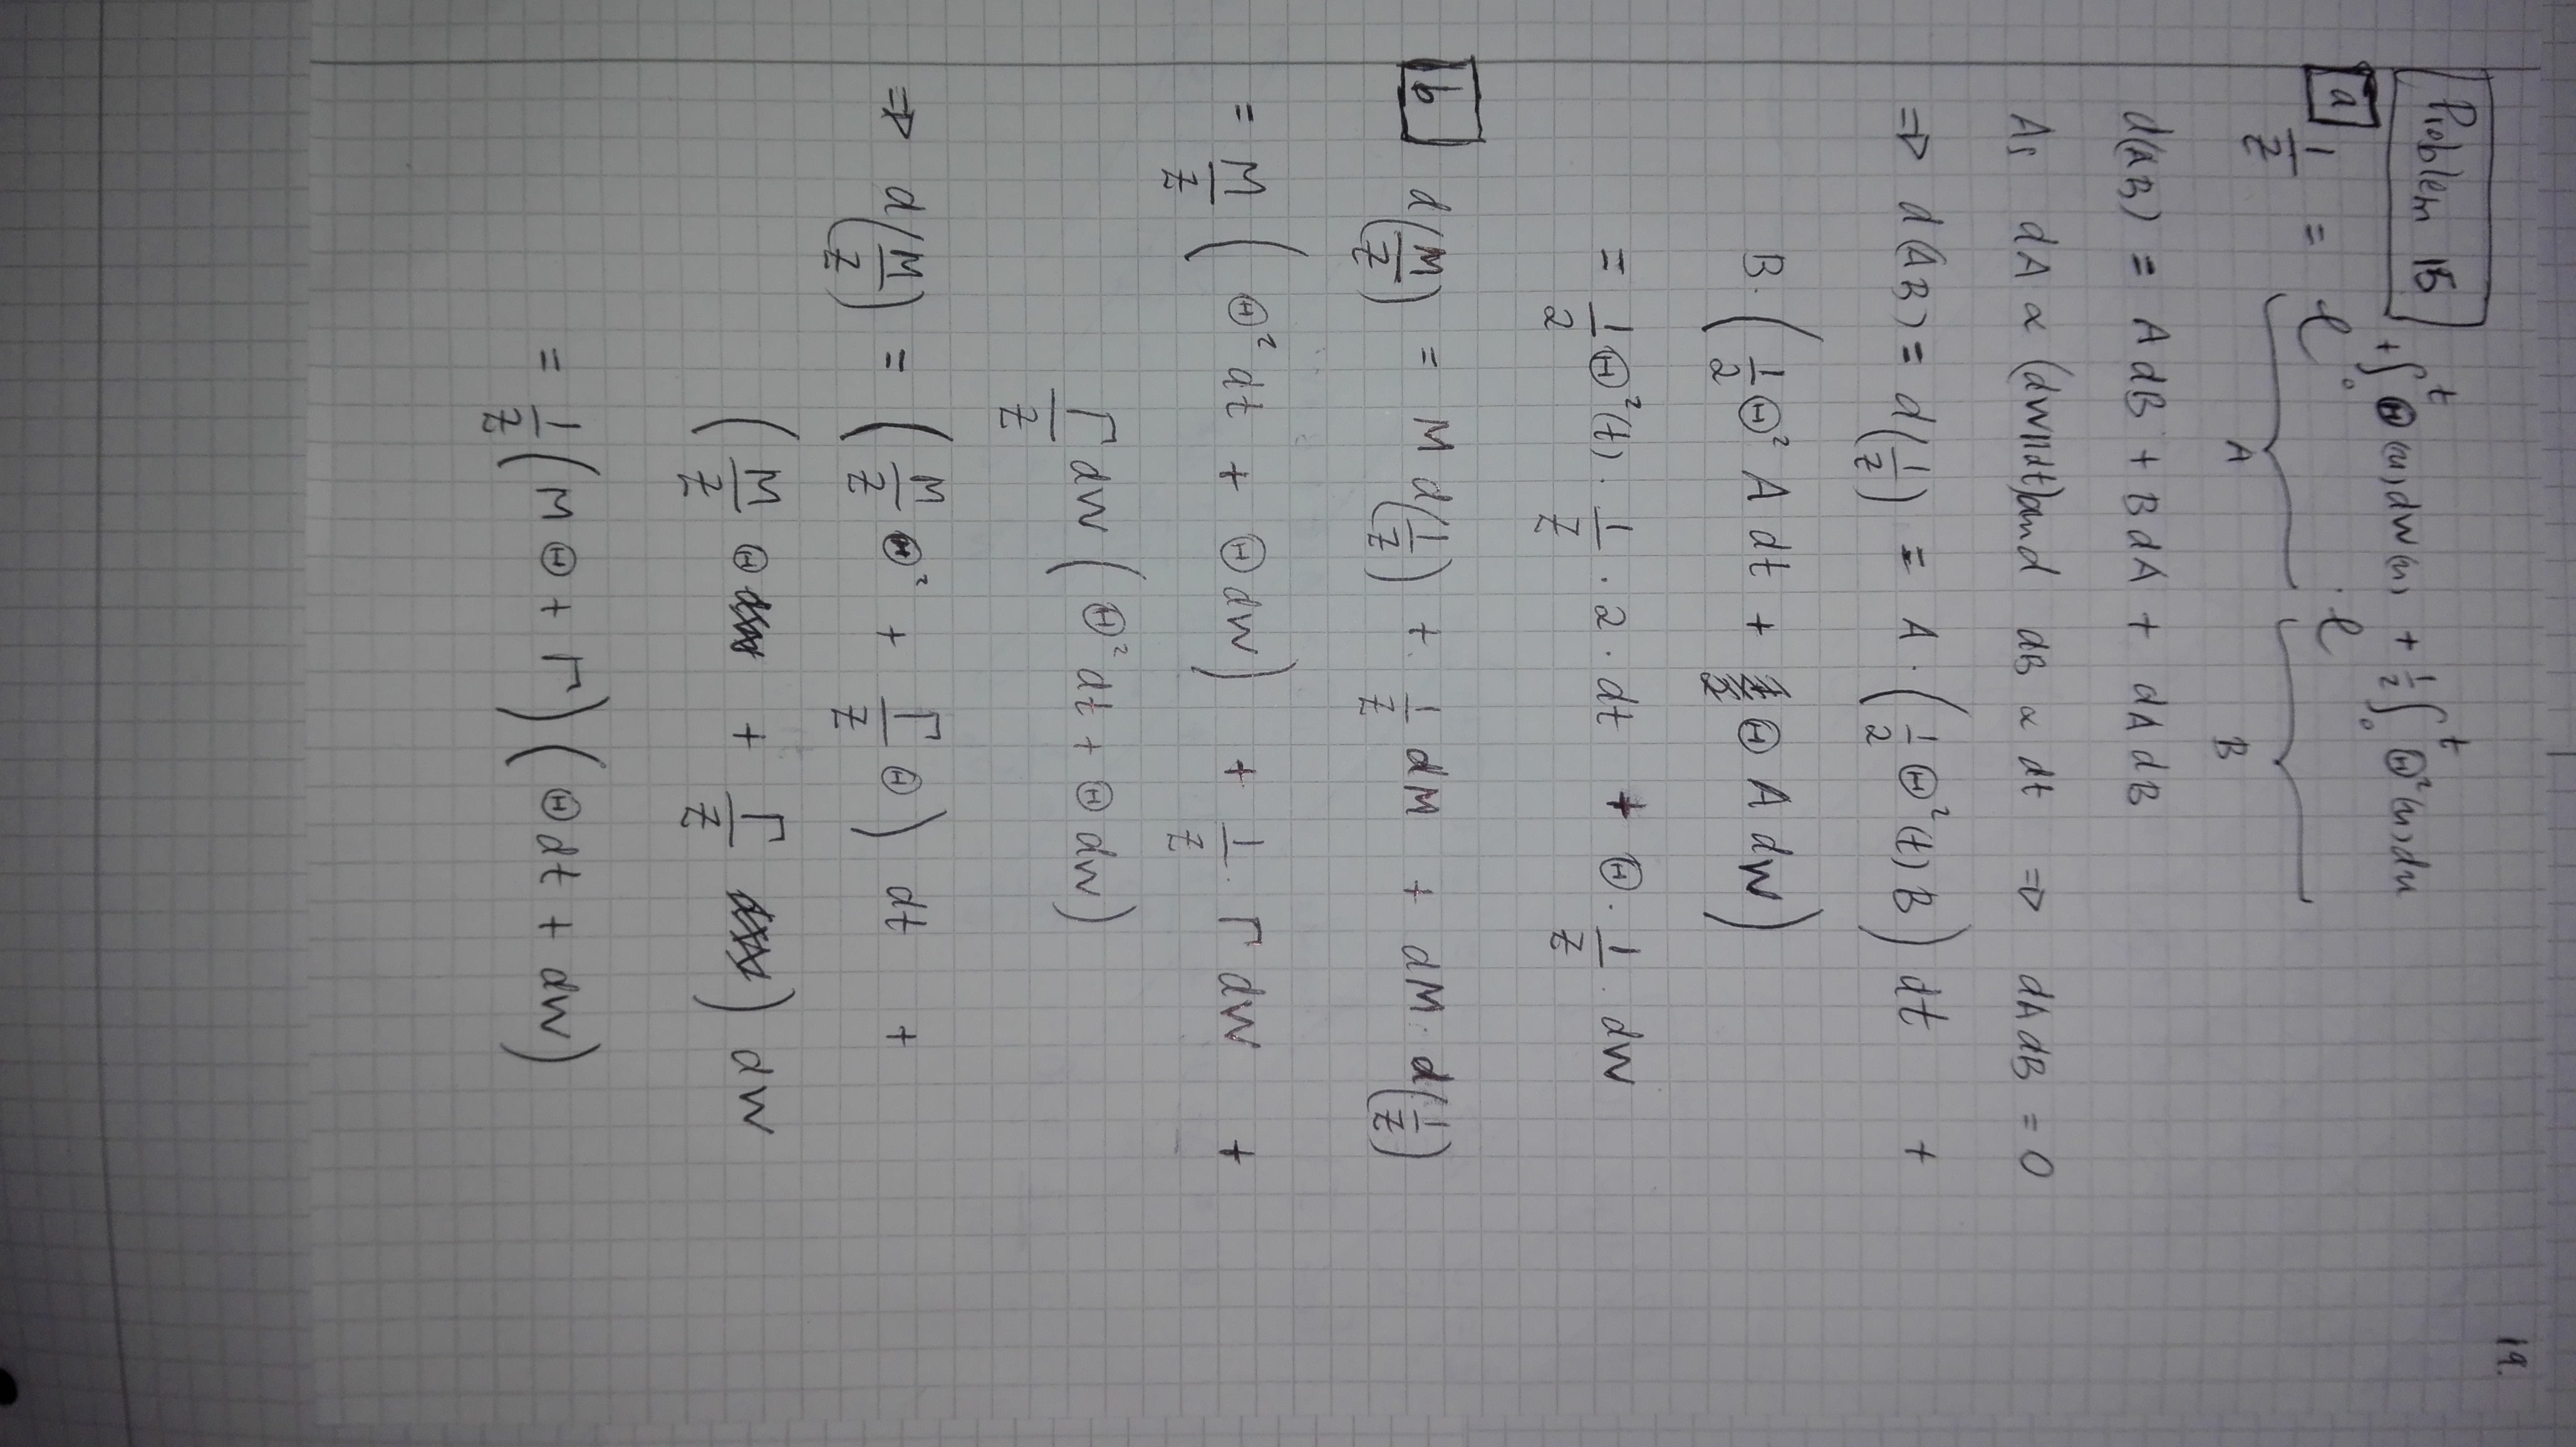 19.
Problem 15
a 1/Z = e^{+∫_0^t Θ(u)dW(u)} · e^{+1/2 ∫_0^t Θ²(u)du}
A B
d(AB) = A dB + B dA + dA dB
As dA ∝ (dW||dt) and dB ∝ dt ⇒ dA dB = 0
⇒ d(AB) = d(1/Z) = A · (1/2 Θ²(t) B) dt +
B · (1/2 Θ² A dt + Θ A dW)
= 1/2 Θ²(t) · 1/Z · 2 · dt + Θ · 1/Z · dW
b d(M/Z) = M d(1/Z) + 1/Z dM + dM · d(1/Z)
= M/Z (Θ² dt + Θ dW) + 1/Z · Γ dW +
Γ/Z dW (Θ² dt + Θ dW)
⇒ d(M/Z) = (M/Z Θ² + Γ/Z Θ) dt +
(M/Z Θ + Γ/Z) dW
= 1/Z (M Θ + Γ) (Θ dt + dW)